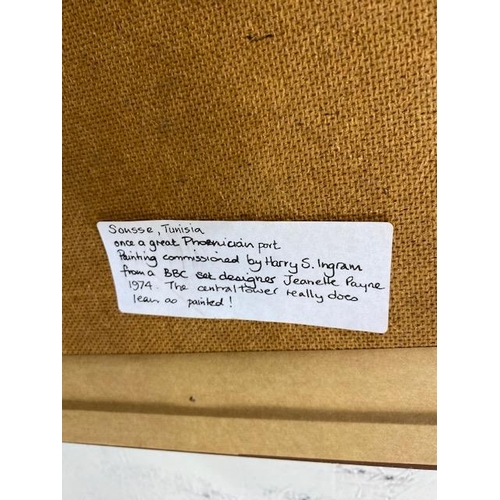 Sousse, Tunisia
once a great Phoenician port
Painting commissioned by Harry S. Ingram
from a BBC set designer Jeanette Payne
1974. The central tower really does
lean as painted!